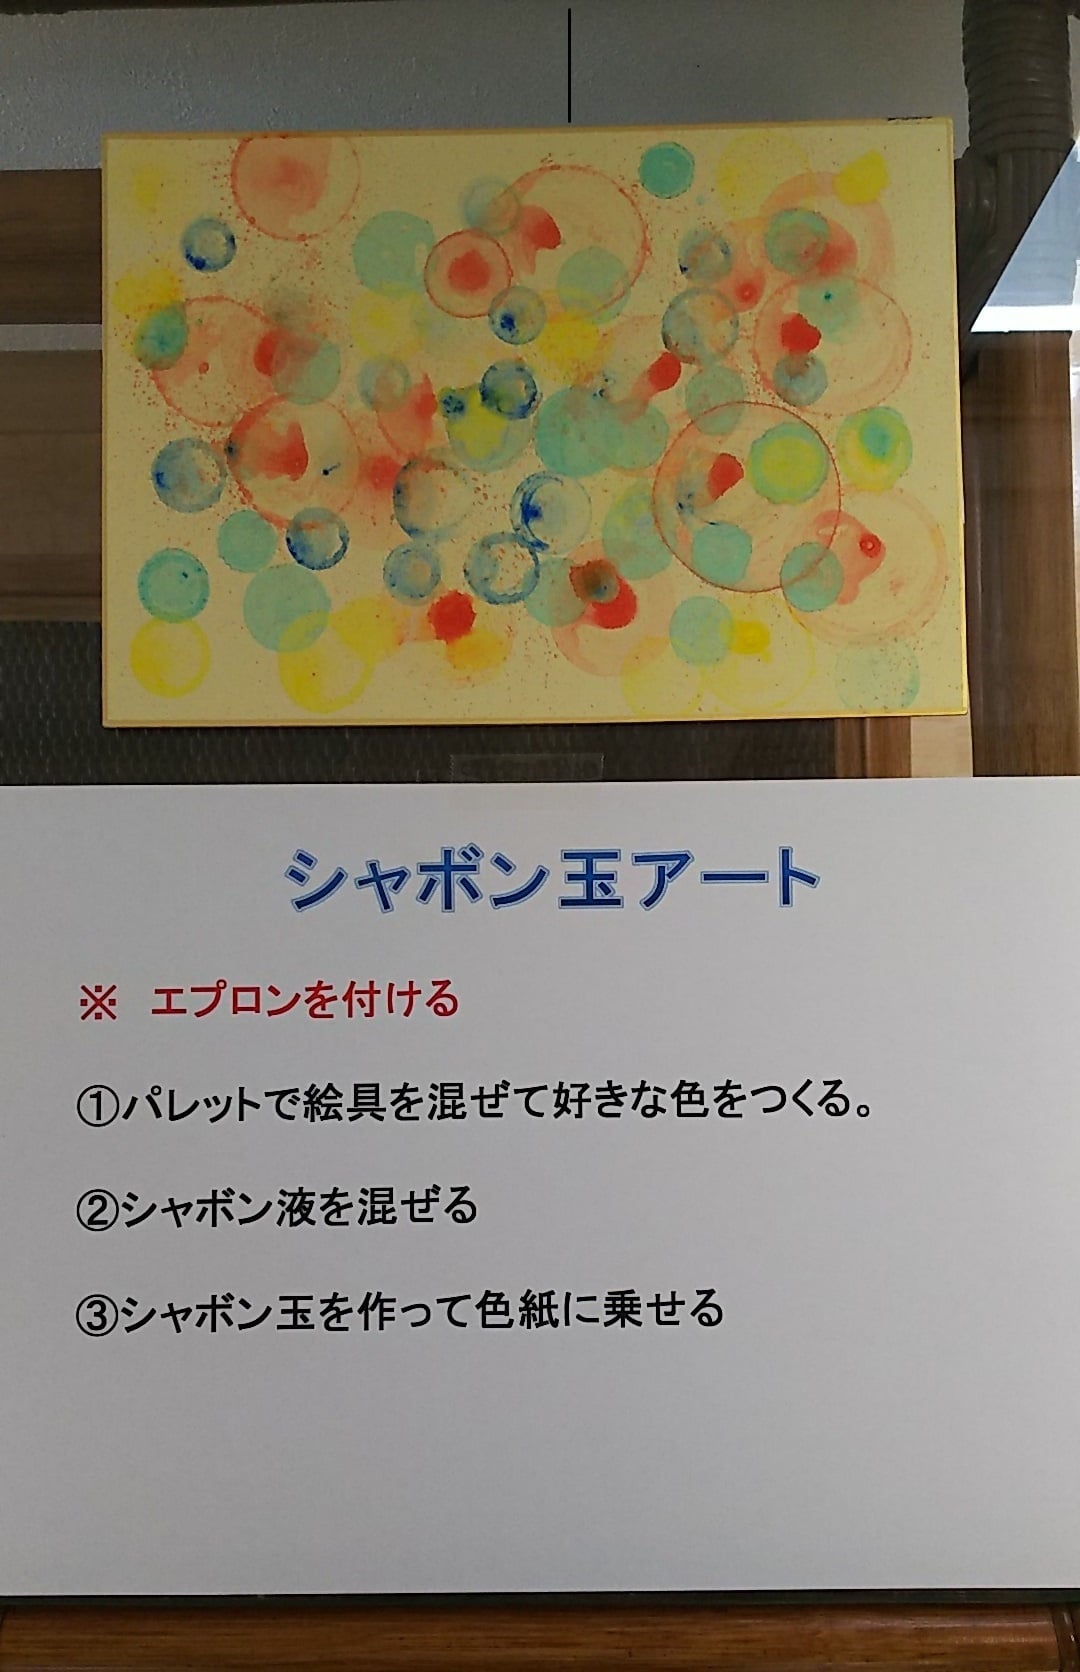 シャボン玉アート
※　エプロンを付ける
①パレットで絵具を混ぜて好きな色をつくる。
②シャボン液を混ぜる
③シャボン玉を作って色紙に乗せる